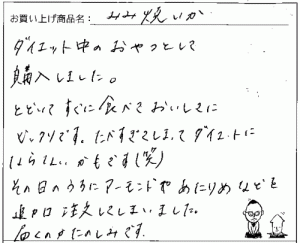 お買い上げ商品名: みみ焼いか
ダイエット中のおやつとして
購入しました。
とどいてすぐに食べておいしさに
ビックリです。たべすぎてしまってダイエットに
ならないかもです(笑)
その日のうちにアーモンドやあたりめなどを
追加注文してしまいました。
届くのがたのしみです。